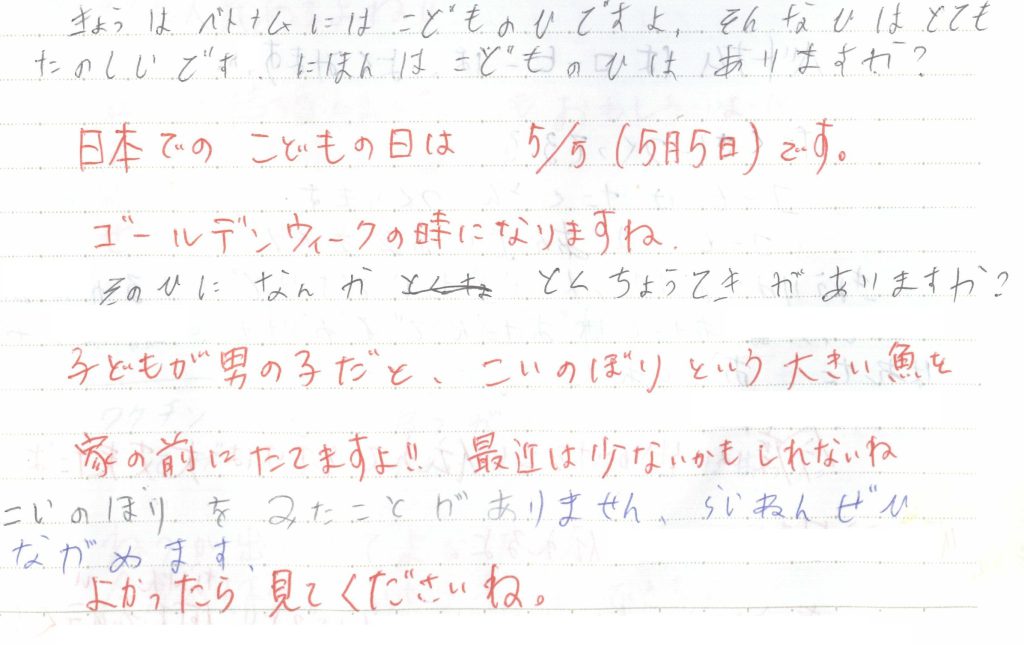 きょうは ベトナムには こどものひですよ、そんなひは とても
たのしいです、にほんは こどものひは ありますか?
日本での こどもの日は 5/5 (5月5日) です。
ゴールデンウィークの時になりますね.
そのひに なんか とくちょうてき が ありますか?
子どもが男の子だと、こいのぼりという 大きい魚を
家の前にたてますよ!! 最近は少ないかもしれないね
こいのぼり を みたことが ありません、らいねん ぜひ
ながめます、
よかったら 見てくださいね。